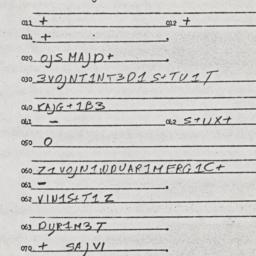 011 + 012 +
014 +
020 OJS MAJD+
030 3VOJNT1NT3D1 S+TU1T
040 KAJG+1B3
041 - 042 S+UX+
050 O
060 Z1VOJN1WDUAR1MFRG1C+
061 -
062 VIN1S+T1Z
063 DYR1M3T
070 + SAJVI